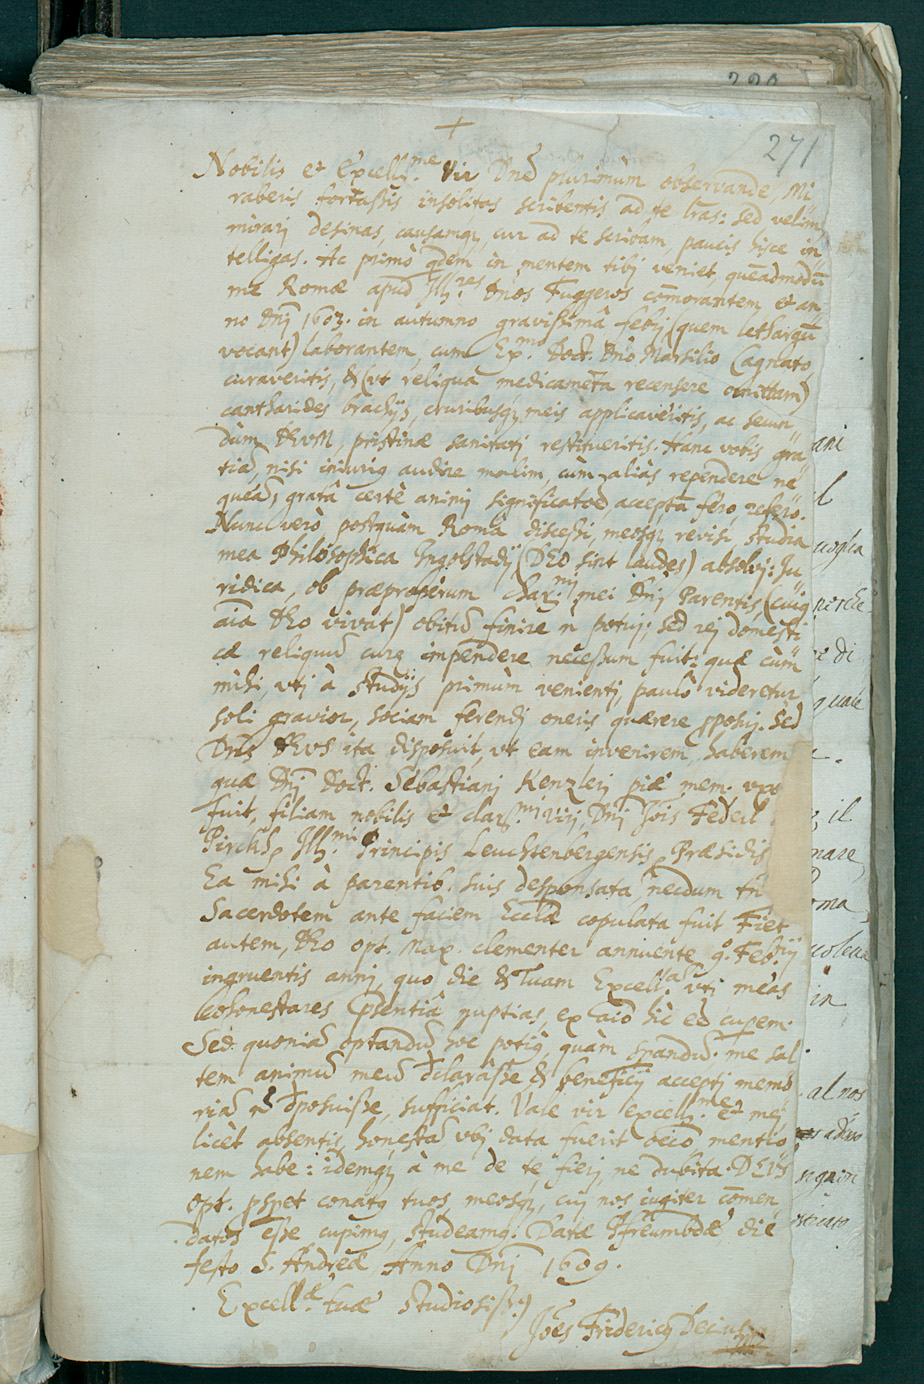 220
271
+
Nobilis et Excell.me Vir Dne plurimum observande, Mi
raberis fortassis insolitas scribentis ad te lras: sed velim
mirarj desinas, causamq, cur ad te scribam, paucis hisce in
telligas. Ac primò qdem in mentem tibj veniet, queadmodū
me Romæ apud Ill.res Dnos Fuggeros cōmorantem, et an
no Dnj 1603. in autumno gravissimâ febrj (quem lethargū
vocant) laborantem, cum Ex.mo Doct. Dno Marsilio Cagnato,
curaveritis, & (vt reliqua medicamēta recensere omittam)
cantharides brachijs, cruribusq, meis applicaveritis, ac secun
dùm DEVM pristinæ sanitatj restitueritis. Hanc vobis gra
tiā, nisi iniurię audire malim, cùm aliàs rependere ne
queā, gratâ certè animj significatoē acceptā fero refero.
Nunc verò postquàm Româ discessi, meosq, revisi, studia
mea Philosophica Ingolstadij, (DEO sint laudes) absolvj: Ju
ridica, ob præproperum Char.mj mei Dnj Parentis, (cuiq
aīa DEO vivat) obitū finire n potuj; sed rej domesti
cæ reliquū curæ impendere necessum fuit: quæ cùm
mihi vtj à studijs primùm venientj, paulò videretur
soli gravior, sociam ferendj oneris quærere pposuj. Sed
Dns DEVS ita disposuit, vt eam invenirem, haberem
quæ Dnj Doct. Sebastianj Kenzlerj piæ mem. vxor
fuit, filiam nobilis et clarss.mj virj Dnj Jois Federl
Ill.mi Principis Leuchtenbergensis Præsidis
Ea mihi à parentib. suis desponsata, necdum tn
Sacerdotem ante faciem Eccliæ copulata fuit. Fiet
autem, DEO opt. Max. clementer annuente 9. Febrij
ingruentis annj, quo die & Tuam Excell.am vtj meas
cohonestares psentiâ nuptias, ex aīo hîc eē cuperem.
Sed quoniā optandū hoc potiq, quàm spandū. me sal
tem animū meū dclarâsse & beneficij acceptj memo
riā n dposuisse, sufficiat. Vale vir excell.me et mej
licèt absentis, honestâ vbj data fuerit occōe mentio
nem habe: idemq, à me de te fierj, ne dubita. DEVS
opt. pspet conatq tuos, meosq, cuj nos iugiter cōmen
datos esse cupimq, studeamq. Datæ Pfreumbdæ die
festo S. Andreæ Anno Dnj 1609.
Excell.æ tuæ studiosiss.
Joēs Fridericq